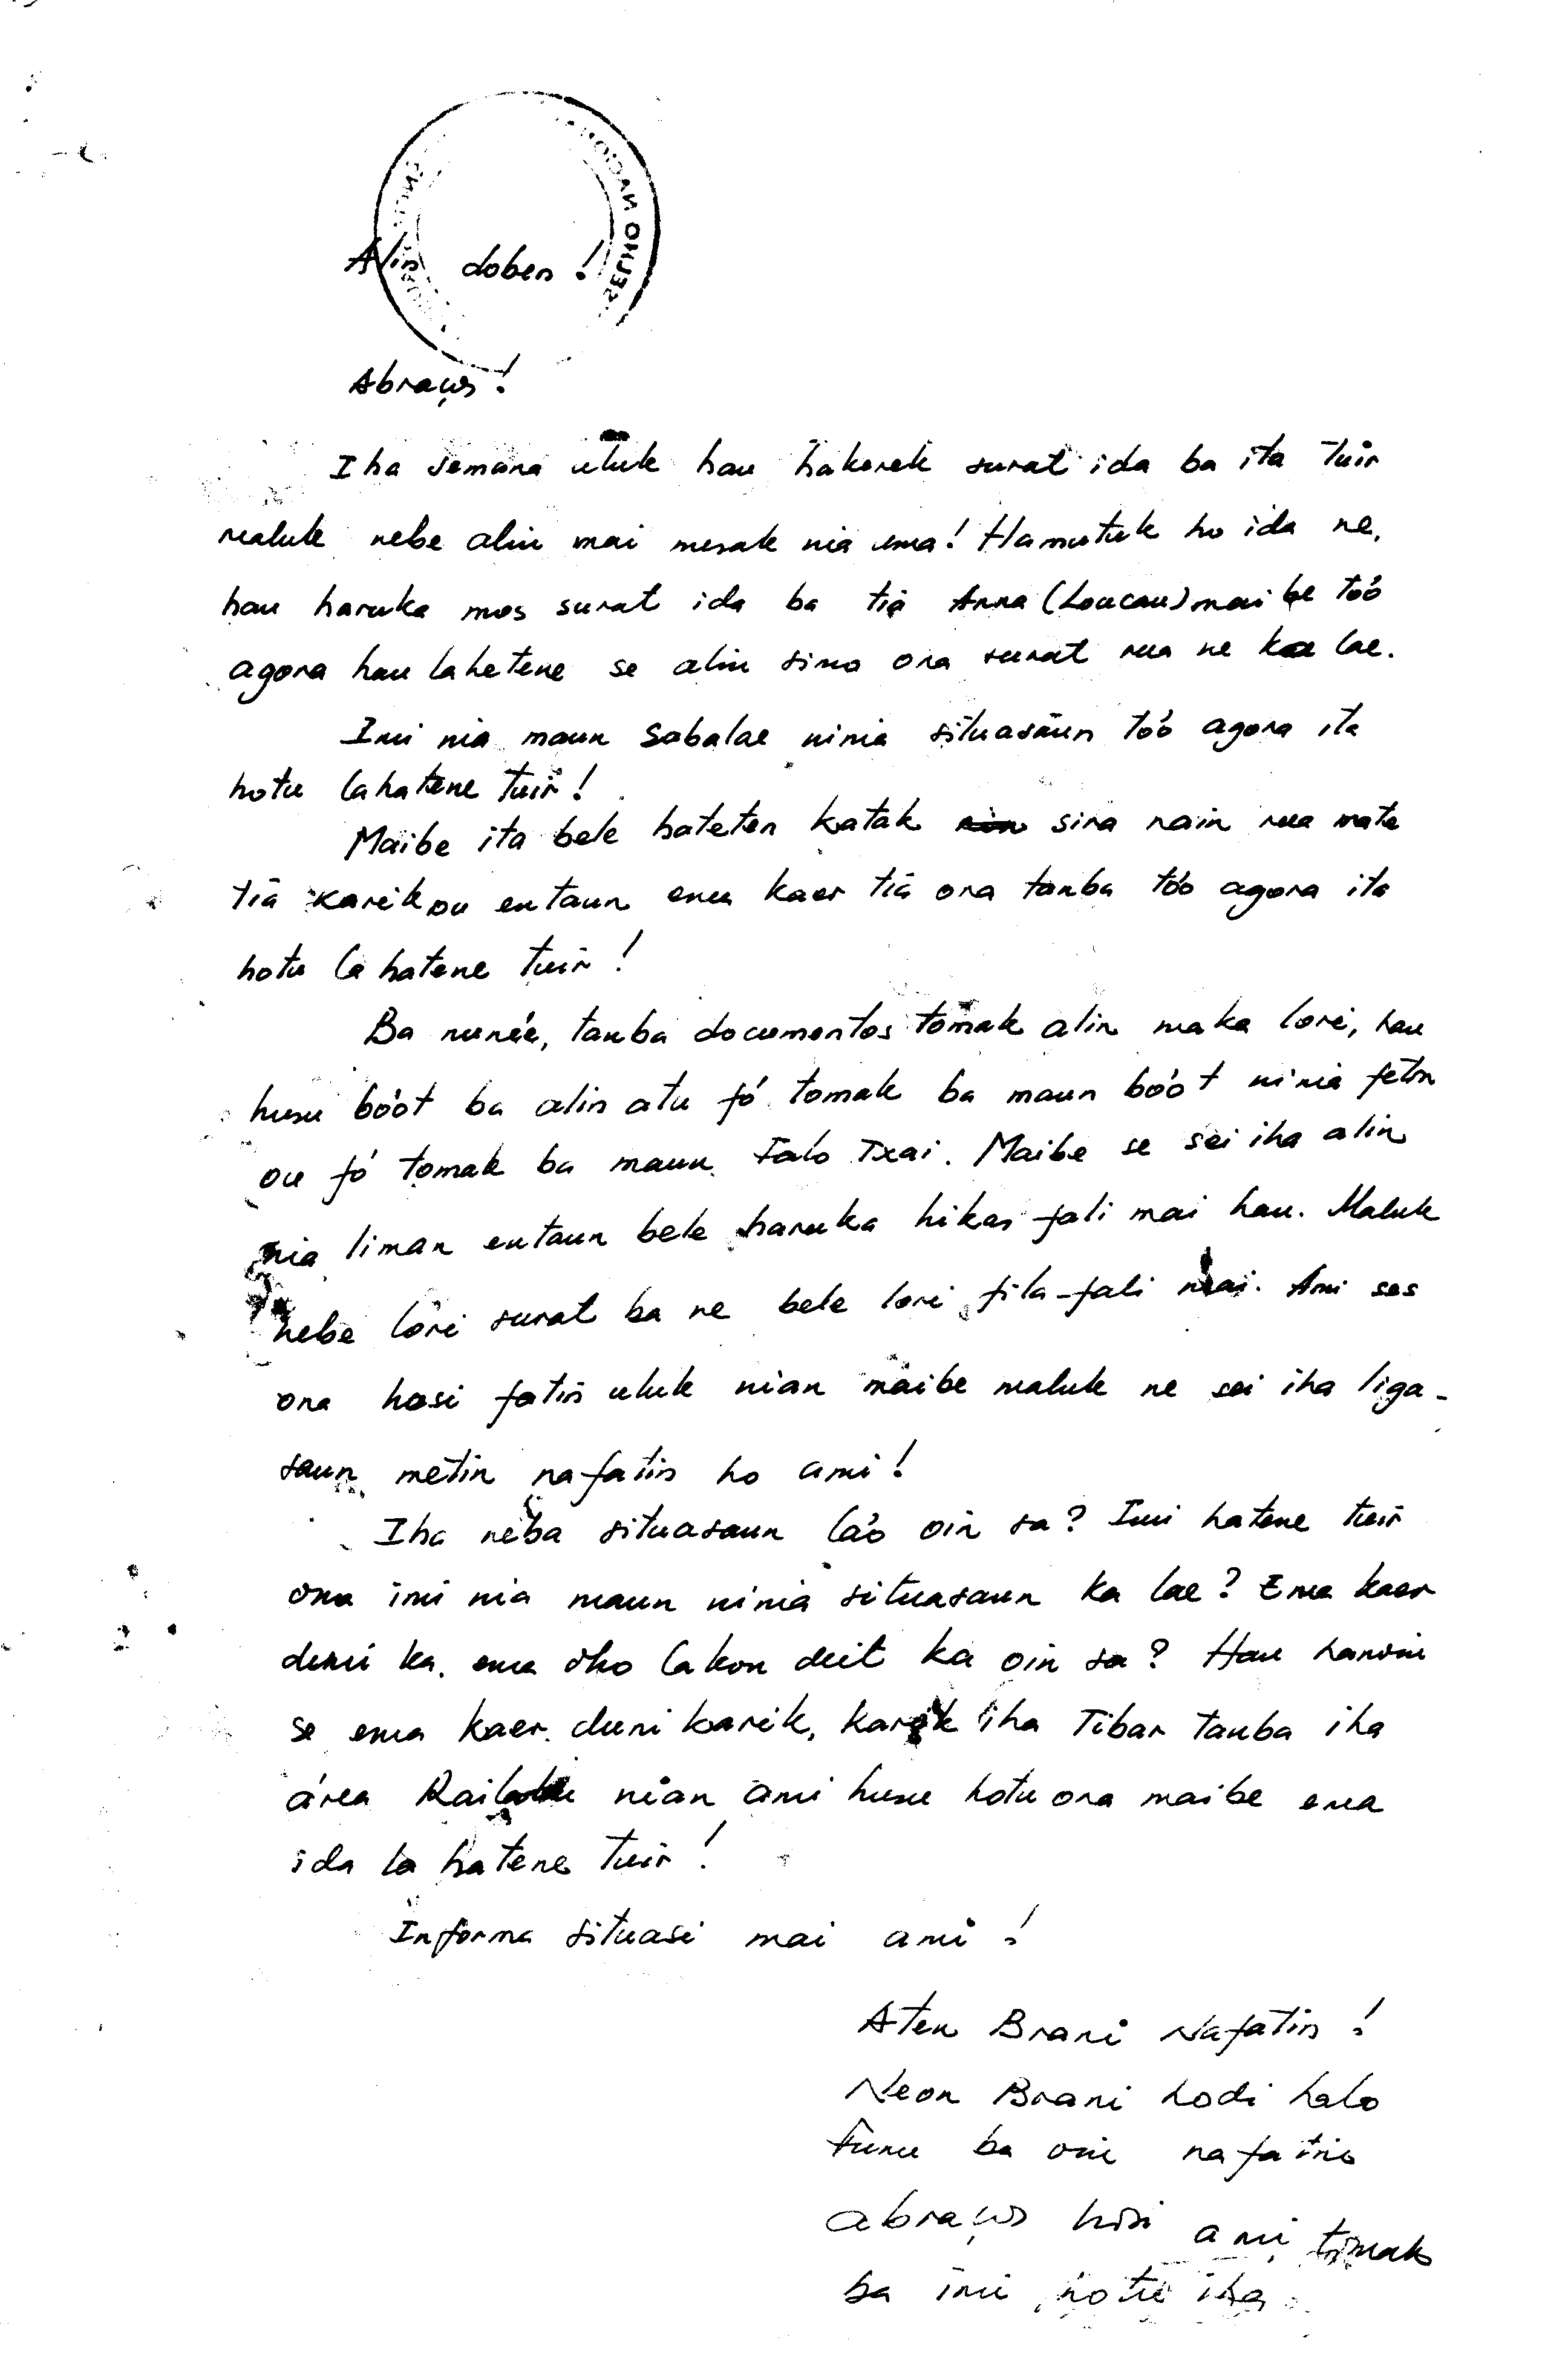 Alin doben!
Abraços!
Iha semana uluk hau hakerek surat ida ba ita tuir
maluk nebe alin mai mesak nia ema! Hamutuk ho ida ne,
hau haruka mos surat ida ba tia Anna (Loucau) maibe tóo
agora hau lahetene se alin simo ona surat rua ne ka lae.
Imi nia maun Sabalae ninia situasaun tóo agora ita
hotu lahatene tuir!
Maibe ita bele hateten katak sira nain rua mate
tiā karik ou entaun ema kaer tiā ona tanba tóo agora ita
hotu la hatene tuir!
Ba nunée, tanba documentos tomak alin maka lori, hau
husu bóot ba alin atu fó tomak ba maun bóot ninia feton
ou fó tomak ba maun Falo Txai. Maibe se sei iha alin
nia liman entaun bele haruka hikas fali mai hau. Maluk
nebe lori surat ba ne bele lori fila-fali mai. Ami ses
ona hosi fatin uluk nian maibe maluk ne sei iha liga-
saun metin nafatin ho ami!
Iha neba situasaun láo oin sa? Imi hatene tuir
ona imi nia maun ninia situasaun ka lae? Ema kaer
duni ka, ema oho lakon deit ka oin sa? Hau hanoin
se ema kaer duni karik, karik iha Tibar tanba iha
área Railaku nian ami husu hotu ona maibe ema
ida la hatene tuir!
Informa situasi mai ami!
Aten Brani Nafatin!
Neon Brani hodi halo
funu ba oin nafatin
abraços hosi ami tomak
ba imi hotu iha